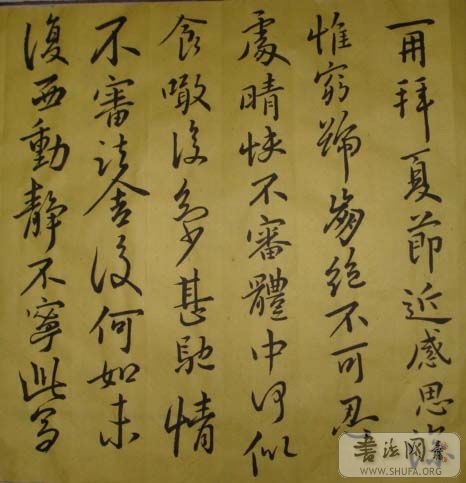 再拜夏節近感思
惟窮號崩絕不可忍
處晴快不審體中何似
食噉復多少甚馳情
不審諸舍復何如未
復西動靜不寧此寫
書法网
WWW.SHUFA.ORG